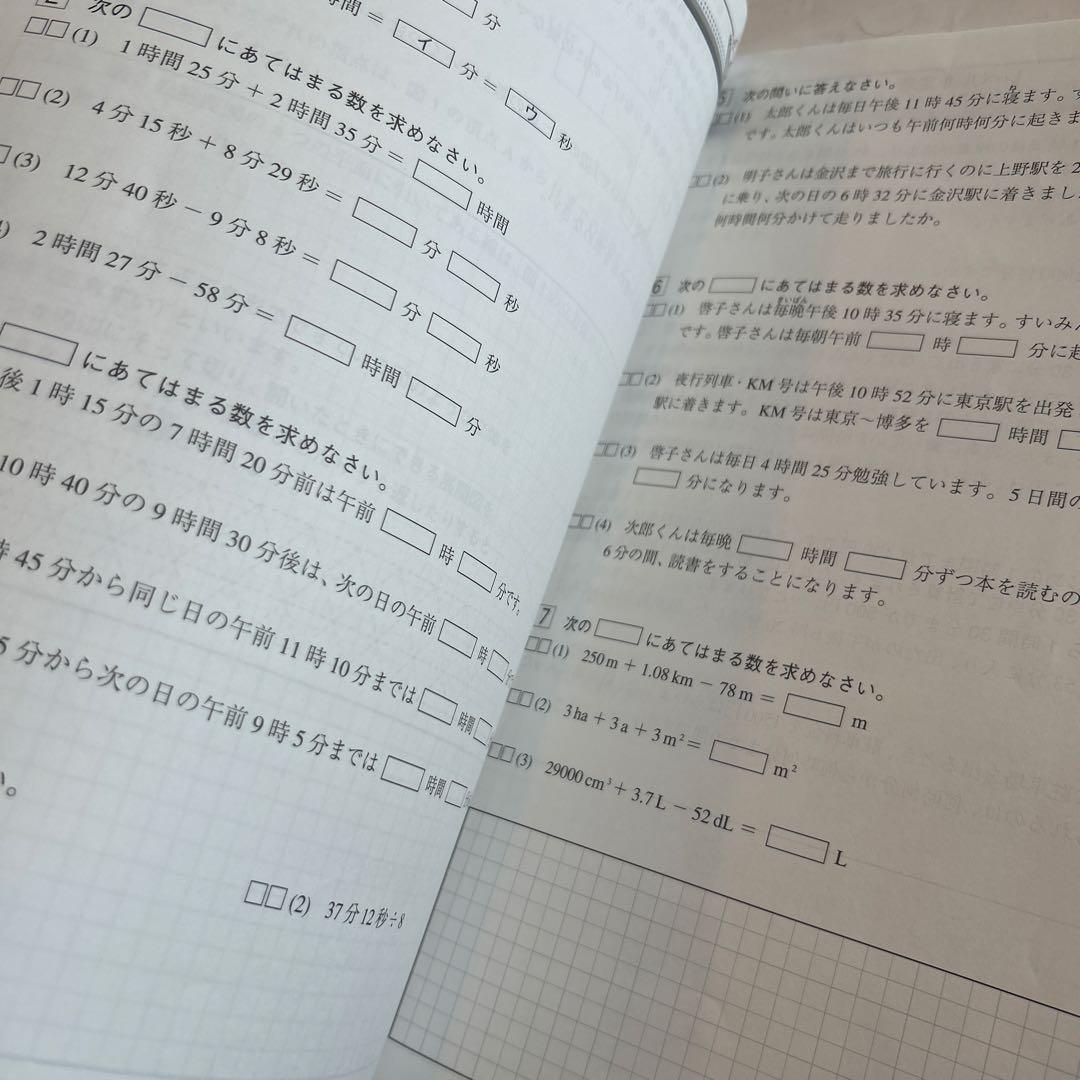 分
時間 = イ 分 = ウ 秒
2 次の□にあてはまる数を求めなさい。
□□(1) 1時間25分 + 2時間35分 = □時間
□□(2) 4分15秒 + 8分29秒 = □分□秒
□(3) 12分40秒 − 9分8秒 = □分□秒
2時間27分 − 58分 = □時間□分
□にあてはまる数を求めなさい。
後1時15分の7時間20分前は午前□時□分です。
10時40分の9時間30分後は、次の日の午前□時□
時45分から同じ日の午前11時10分までは□時間□
5分から次の日の午前9時5分までは□時間□
い。
□□(2) 37分12秒÷8
5 次の問いに答えなさい。
□□(1) 太郎くんは毎日午後11時45分に寝ます。
です。太郎くんはいつも午前何時何分に起きま
□□(2) 明子さんは金沢まで旅行に行くのに上野駅を2
に乗り、次の日の6時32分に金沢駅に着きまし
何時間何分かけて走りましたか。
6 次の□にあてはまる数を求めなさい。
□□(1) 啓子さんは毎晩午後10時35分に寝ます。すいみん
です。啓子さんは毎朝午前□時□分に起
□□(2) 夜行列車・KM号は午後10時52分に東京駅を出発
駅に着きます。KM号は東京～博多を□時間□
□□(3) 啓子さんは毎日4時間25分勉強しています。5日間の
□分になります。
□□(4) 次郎くんは毎晩□時間□分ずつ本を読むの
6分の間、読書をすることになります。
7 次の□にあてはまる数を求めなさい。
□□(1) 250m + 1.08km − 78m = □m
□□(2) 3ha + 3a + 3m² = □m²
□□(3) 29000cm³ + 3.7L − 52dL = □L